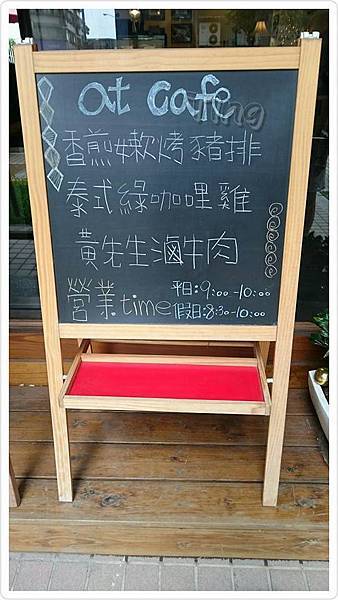 at cafe
香煎嫩烤豬排
泰式綠咖哩雞
黃先生滷牛肉
營業time 平日:9:00-10:00
假日:8:30-10:00